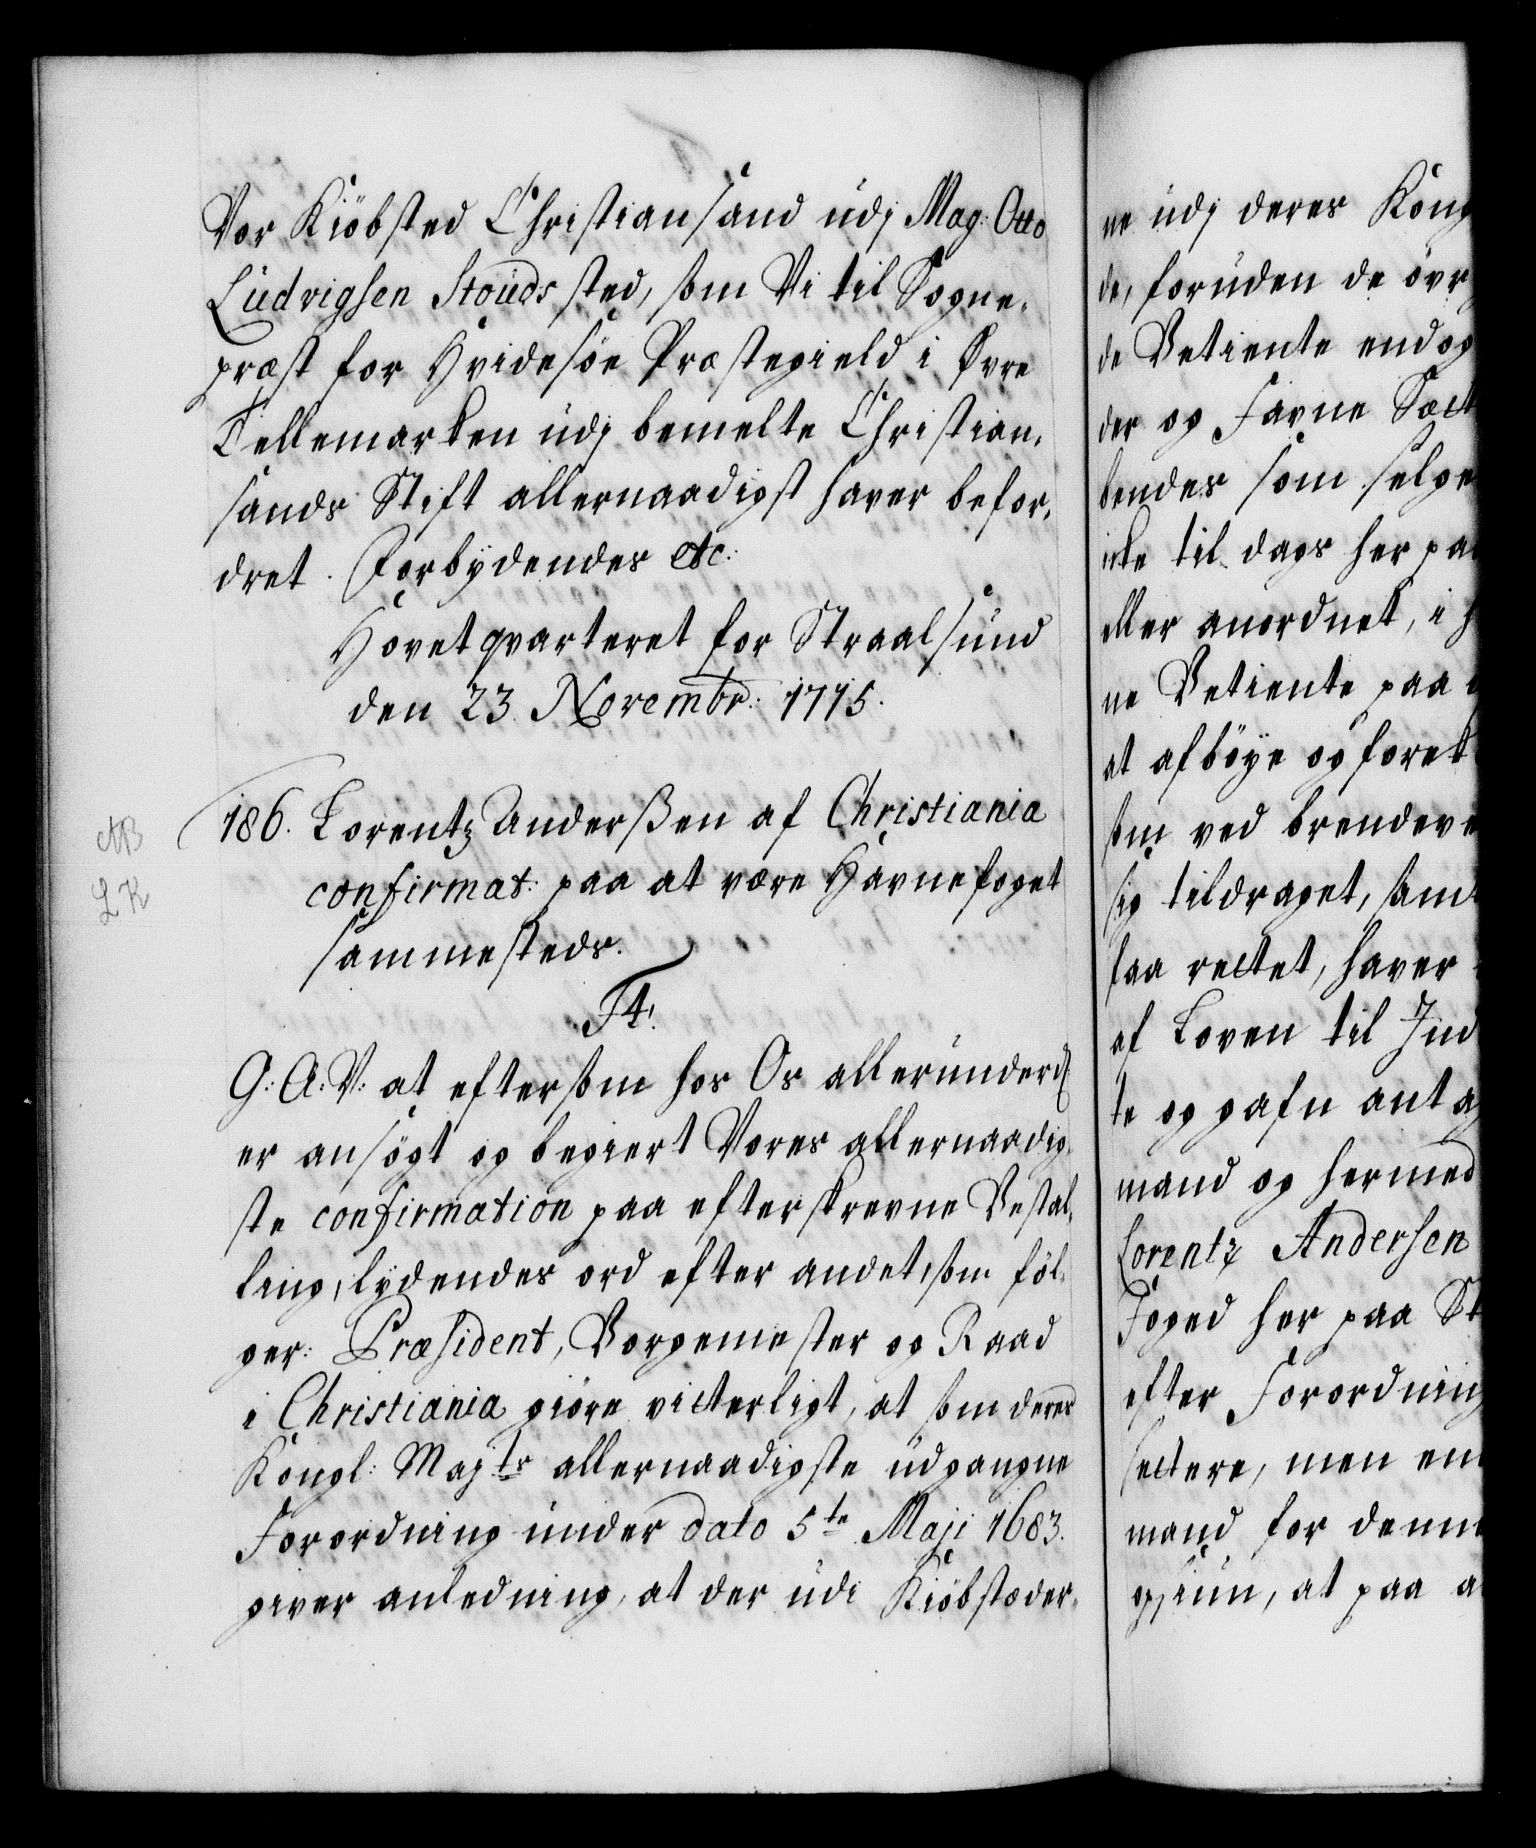 Vor Kiöbsted Christiansand udj Mag: Otto
Ludvigsen Stouds sted, som Vi til Sogne-
præst for Hvidesöe Præstegield i Øvre
Tellemarken udj bemelte Christian-
sands Stift allernaadigst haver befor-
dret. Forbydendes etc:
Hovetqvarteret for Straalsund
den 23 Novembr: 1715.
186. Lorentz Anderßen af Christiania
AB
confirmat: paa at være Havnefoget
LK
sammesteds.
F4.
G: A: V: at eftersom hos Os allerunderd
er ansögt og begiert Vores allernaadig-
ste confirmation paa efterskrevne Bestal-
ling, lydendes ord efter andet, som föl-
ger: Præsident, Borgemester og Raad
i Christiania giöre vitterligt, at som deres
Kongl: Majts allernaadigste udgangne
Forordning under dato 5te Maji 1683.
giver anledning, at der udi Kiöbstæder-
ne udj deres Kong
de, foruden de övr
de Betiente endog
der og Favne Sætt
bendes som selge
icke til dags her paa
eller anordnet, i h
ne Betiente paa
at afböye og forek
som ved brendeve
sig tildraget, samt
saa rettet, haver
af Loven til Ind
te og gafn antag
mand og hermed
Lorentz Andersen
Foged her paa St
efter Forordning
settere, men en
mand for denne
giun, at paa a